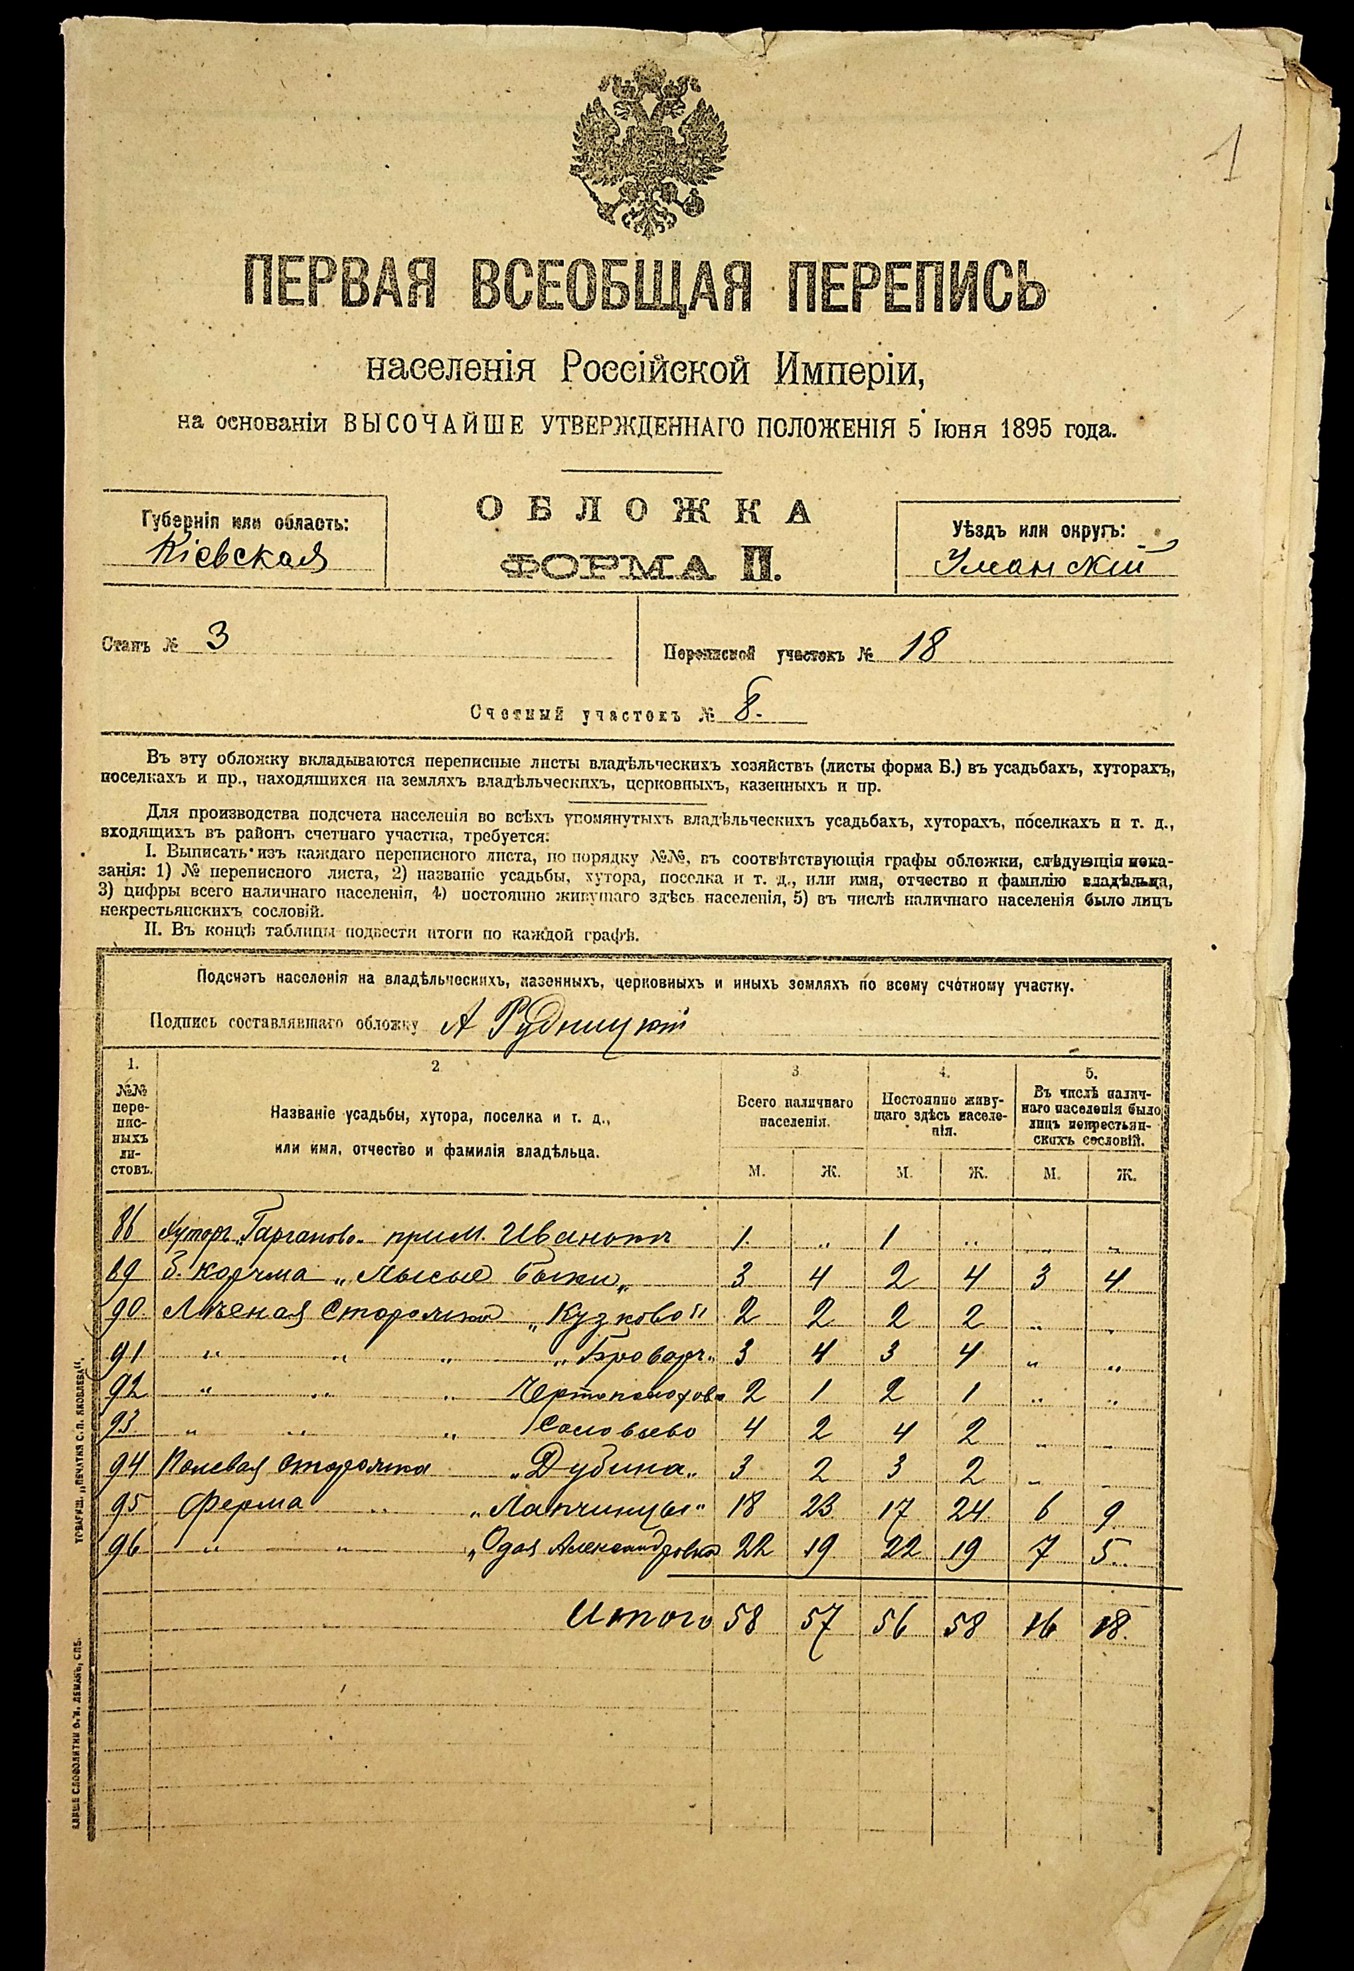 1
ПЕРВАЯ ВСЕОБЩАЯ ПЕРЕПИСЬ
населенія Россійской Имперіи,
на основаніи ВЫСОЧАЙШЕ УТВЕРЖДЕННАГО ПОЛОЖЕНІЯ 5 Іюня 1895 года.
ОБЛОЖКА
ФОРМА П.
Губернія или область:
Кіевская
Уѣздъ или округъ:
Уманскій
Станъ № 3
Переписной участокъ № 18
Счетный участокъ № 8.
Въ эту обложку вкладываются переписные листы владѣльческихъ хозяйствъ (листы форма Б.) въ усадьбахъ, хуторахъ,
поселкахъ и пр., находящихся на земляхъ владѣльческихъ, церковныхъ, казенныхъ и пр.
Для производства подсчета населенія во всѣхъ упомянутыхъ владѣльческихъ усадьбахъ, хуторахъ, поселкахъ и т. д.,
входящихъ въ районъ счетнаго участка, требуется:
I. Выписать изъ каждаго переписного листа, по порядку №№, въ соотвѣтствующія графы обложки, слѣдующія пока-
занія: 1) № переписного листа, 2) названіе усадьбы, хутора, поселка и т. д., или имя, отчество и фамилію владѣльца,
3) цифры всего наличнаго населенія, 4) постоянно живущаго здѣсь населенія, 5) въ числѣ наличнаго населенія было лицъ
некрестьянскихъ сословій.
II. Въ концѣ таблицы подвести итоги по каждой графѣ.
Подсчетъ населенія на владѣльческихъ, казенныхъ, церковныхъ и иныхъ земляхъ по всему счетному участку.
Подпись составлявшаго обложку А Рудницкій
1. №№ пере-
пис-
ныхъ
ли-
стовъ.
2
Названіе усадьбы, хутора, поселка и т. д.,
или имя, отчество и фамилія владѣльца.
3
Всего наличнаго
населенія.
М. Ж.
4.
Постоянно живу-
щаго здѣсь населе-
нія.
М. Ж.
5.
Въ числѣ налич-
наго населенія было
лицъ некрестьян-
скихъ сословій.
М. Ж.
Хуторъ „Гарганово" при М. 1 „ 1 „ „ „
89 корчма „Лысые 3 4 2 4 3 4
90 Лѣсная Сторожка „Кузково" 2 2 2 2 „ „
91 „ „ „ „Броваръ" 3 4 3 4 „ „
92 „ „ „ 2 1 2 1 „ „
93 „ „ „ Соловьево 4 2 4 2 „ „
94 Полевая сторожка „Дубина" 3 2 3 2 „ „
95 Ферма „Лапчинцы" 18 23 17 24 6 9
96 „ „ „Одая Александровка 22 19 22 19 7 5
Итого 58 57 56 58 16 18.
ТОВАРИЩ. „ПЕЧАТНЯ С. П. ЯКОВЛЕВА".
КЛИШЕ СЛОВОЛИТНИ О. И. ЛЕМАНЪ, СПБ.